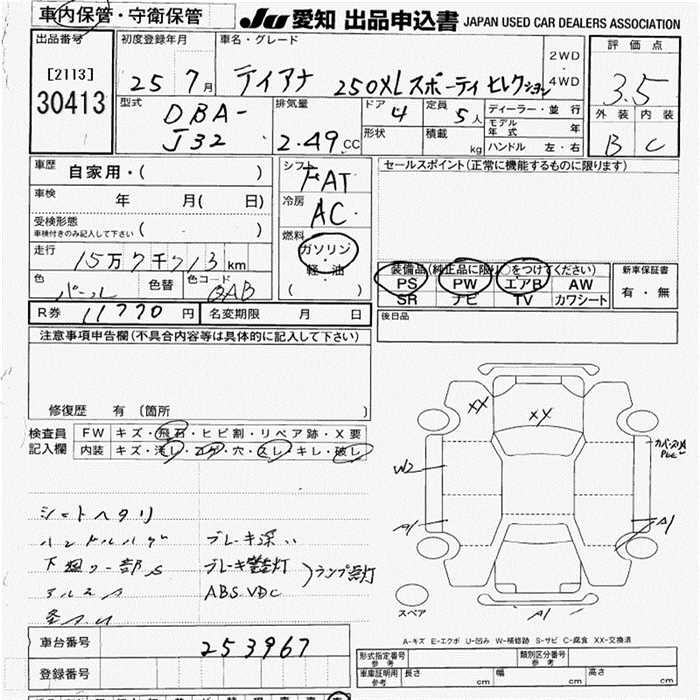 車内保管・守衛保管
JU 愛知 出品申込書 JAPAN USED CAR DEALERS ASSOCIATION
出品番号
[2113]
30413
初度登録年月
25 7月
車名・グレード
ティアナ 250XL スポーティ セレクション
2WD
・
4WD
評価点
3.5
外装 内装
B C
型式
DBA-
J32
排気量
2.49 CC
ドア
4
形状
定員
5人
積載
kg
ディーラー・並行
モデル年式 年
ハンドル 左・右
車歴 自家用・( )
車検 年 月( 日)
受検形態
車検付きのみ記入して下さい ( )
走行 15万7千713 km
色 パール 色替 色コード BAB
シフト
FAT
冷房
AC
燃料
ガソリン
・
軽・油
( )
セールスポイント(正常に機能するものに限ります)
装備品(純正品に限り○をつけてください)
PS PW エアB AW
SR ナビ TV カワシート
新車保証書
有・無
R券 11770 円 名変期限 月 日
後日品
注意事項申告欄(不具合内容等は具体的に記入して下さい)
修復歴 有 (箇所 )
検査員
記入欄
FW キズ・飛石・ヒビ割・リペア跡・X要
内装 キズ・汚し・コゲ・穴・スレ・キレ・破し
シートヘタリ
ハンドルハゲ ブレーキ深い
下廻り一部S ブレーキ警告灯
ABS.VDC
ランプ点灯
XX
XY
W2
A1
A1
A1
スペア
A-キズ E-エクボ U-凹み W-補修跡 S-サビ C-腐食 XX-交換済
車台番号 253967
登録番号
形式指定番号
参考
類別区分番号
参考
車庫証明用
参考
長さ cm 幅 cm 高さ cm